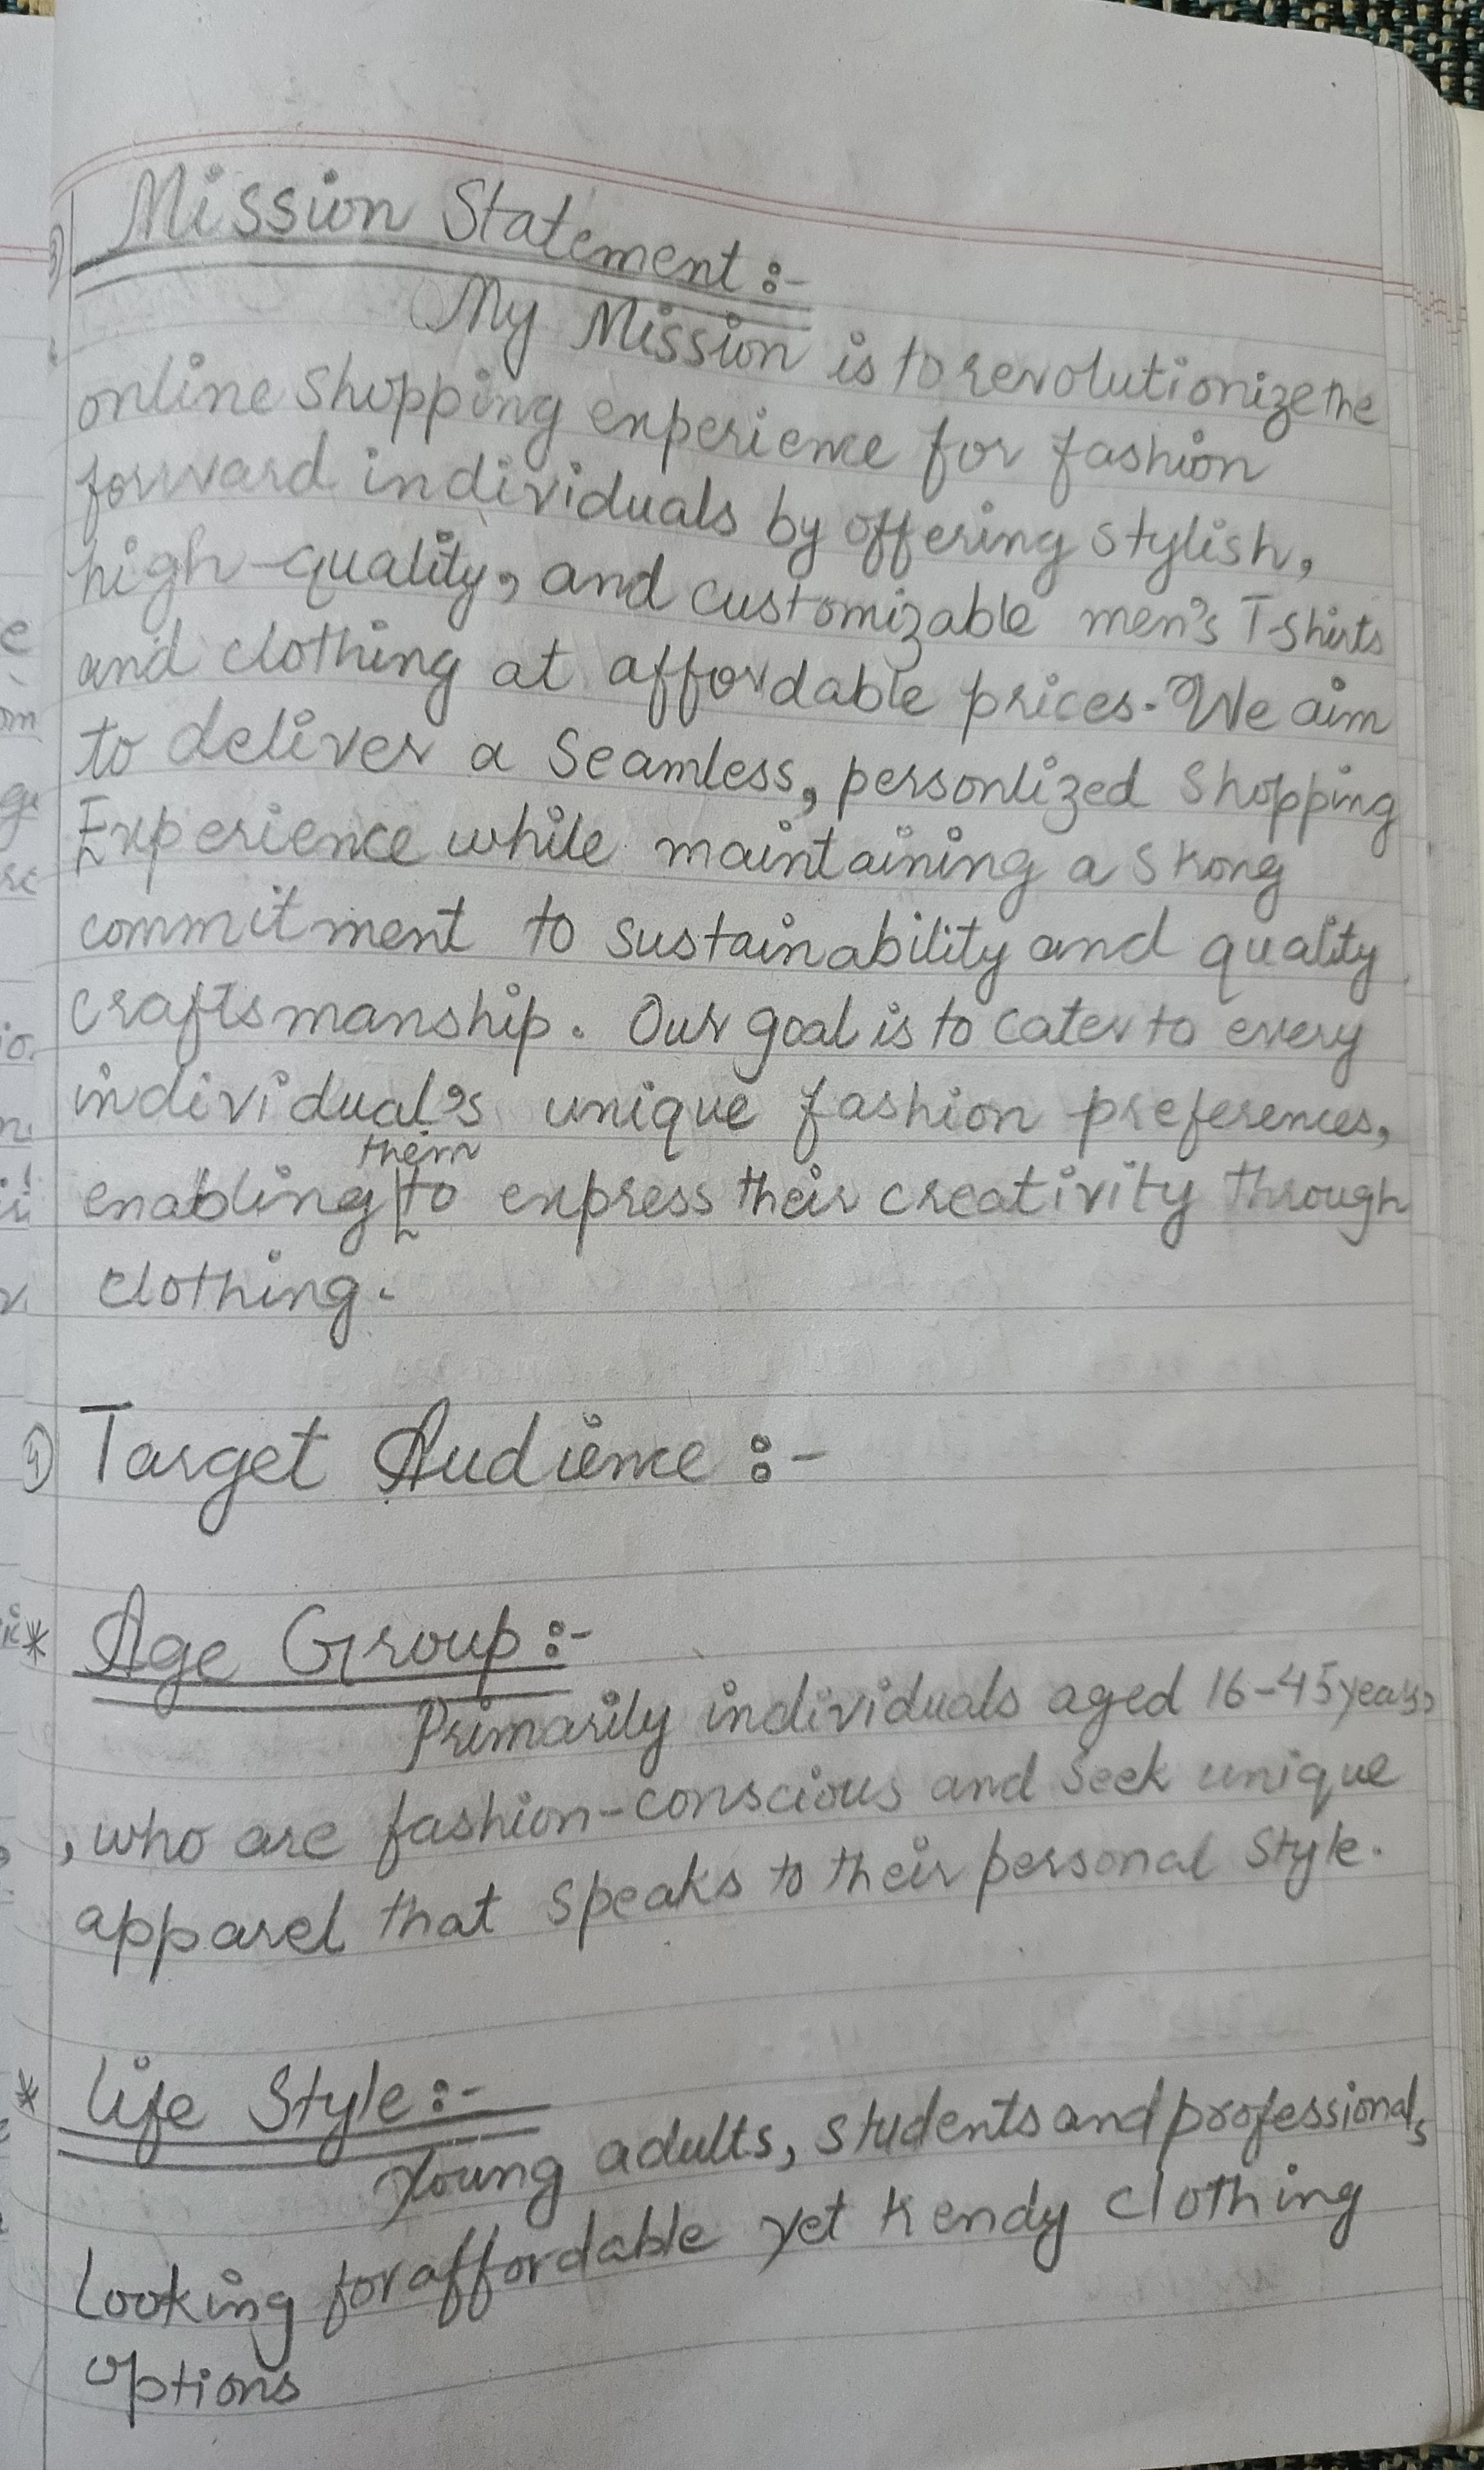 3) Mission Statement :-
My Mission is to revolutionize the
online shopping experience for fashion
forward individuals by offering stylish,
high-quality, and customizable men's T-shirts
and clothing at affordable prices. We aim
to deliver a seamless, personlized shopping
Experience while maintaining a strong
commitment to sustainability and quality
craftsmanship. Our goal is to cater to every
individual's unique fashion preferences,
them
enabling to express their creativity through
clothing.
4) Target Audience :-
* Age Group :-
Primarily individuals aged 16-45 years
, who are fashion-conscious and seek unique
apparel that speaks to their personal style.
* Life Style :-
Young adults, students and professionals
Looking for affordable yet trendy clothing
options